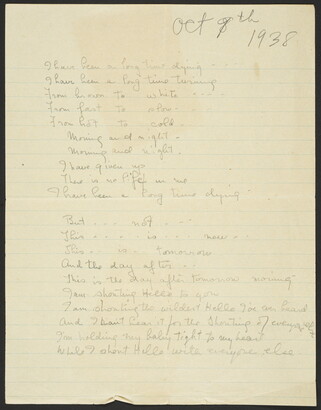 Oct 8th
1938
I have been a long time dying - - -
I have been a long time turning
From brown to white - - - -
From fast to slow - - - -
From hot to cold -
Moving and night -
Moving and night.
I have given up
There is no life in me
I have been a long time dying
But - - - not - - -
This - - - - is - - - - now -
This - - is - tomorrow
And the day after - - -
This is the day after tomorrow morning
I am shouting Hello to you
I am shouting the wildest Hello I've heard
And I can't hear it for the shouting of everyone else
I'm holding my baby tight to my heart
While I shout Hello with everyone else